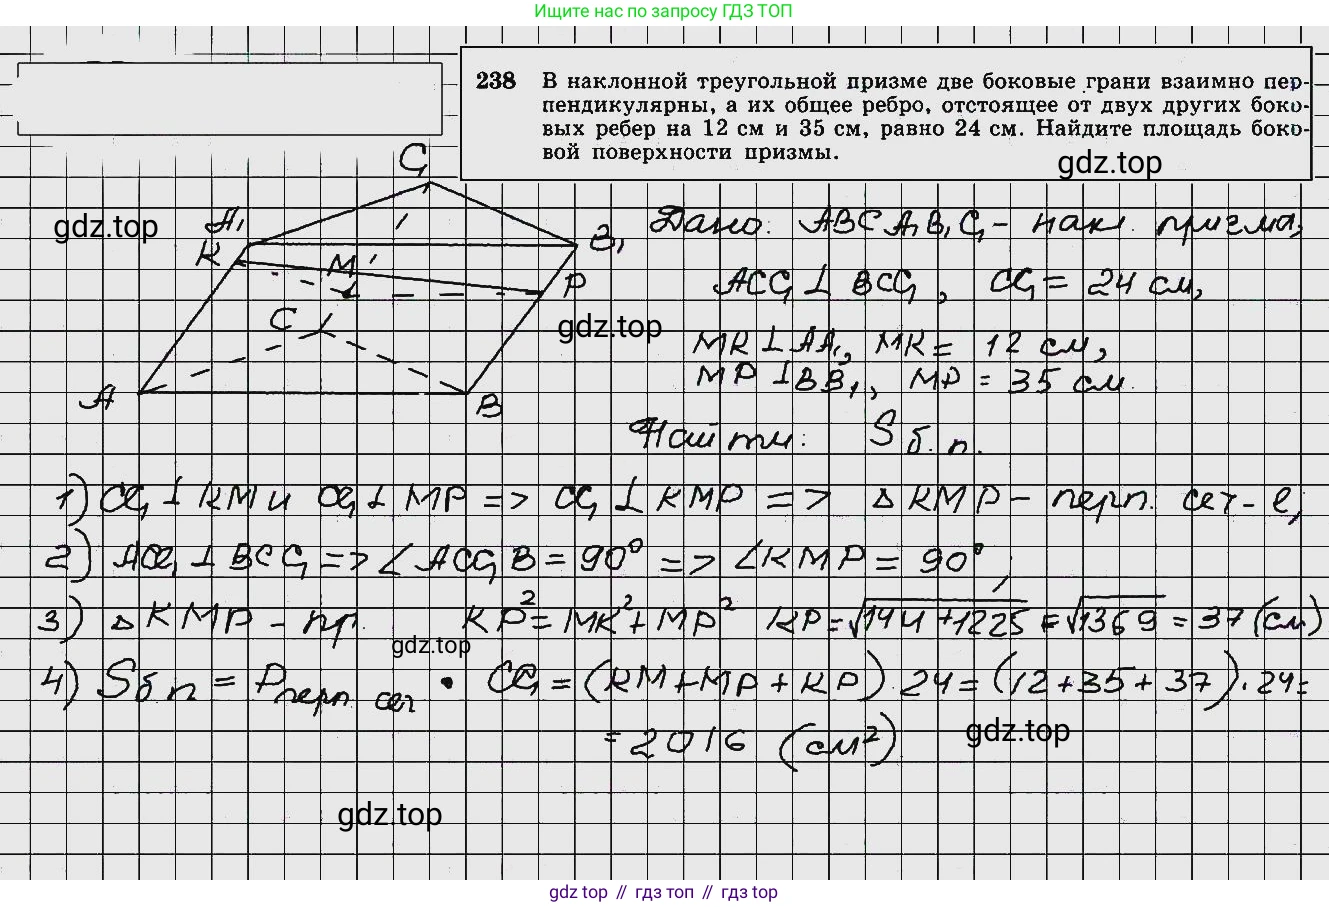 Ищите нас по запросу ГДЗ ТОП
238 В наклонной треугольной призме две боковые грани взаимно пер-
пендикулярны, а их общее ребро, отстоящее от двух других боко-
вых ребер на 12 см и 35 см, равно 24 см. Найдите площадь боко-
вой поверхности призмы.
gdz.top
C₁
gdz.top
A₁
B₁
K
M
P
C
gdz.top
A
B
Дано: ABCA₁B₁C₁ - накл. призма,
ACC₁ ⊥ BCC₁, CC₁ = 24 см,
MK ⊥ AA₁, MK = 12 см,
MP ⊥ BB₁, MP = 35 см
Найти: Sб.п.
1) CC₁ ⊥ KM и CC₁ ⊥ MP => CC₁ ⊥ KMP => △ KMP - перп. сеч-е,
2) ACC₁ ⊥ BCC₁ => ∠ACC₁B = 90° => ∠KMP = 90°,
3) △ KMP - пр. KP² = MK² + MP² KP = √144+1225 = √1369 = 37 (см)
gdz.top
4) Sбп = Pперп. сеч · CC₁ = (KM+MP+KP) · 24 = (12+35+37) · 24 =
= 2016 (см²)
gdz.top
gdz.top
gdz top // гдз топ // gdz top